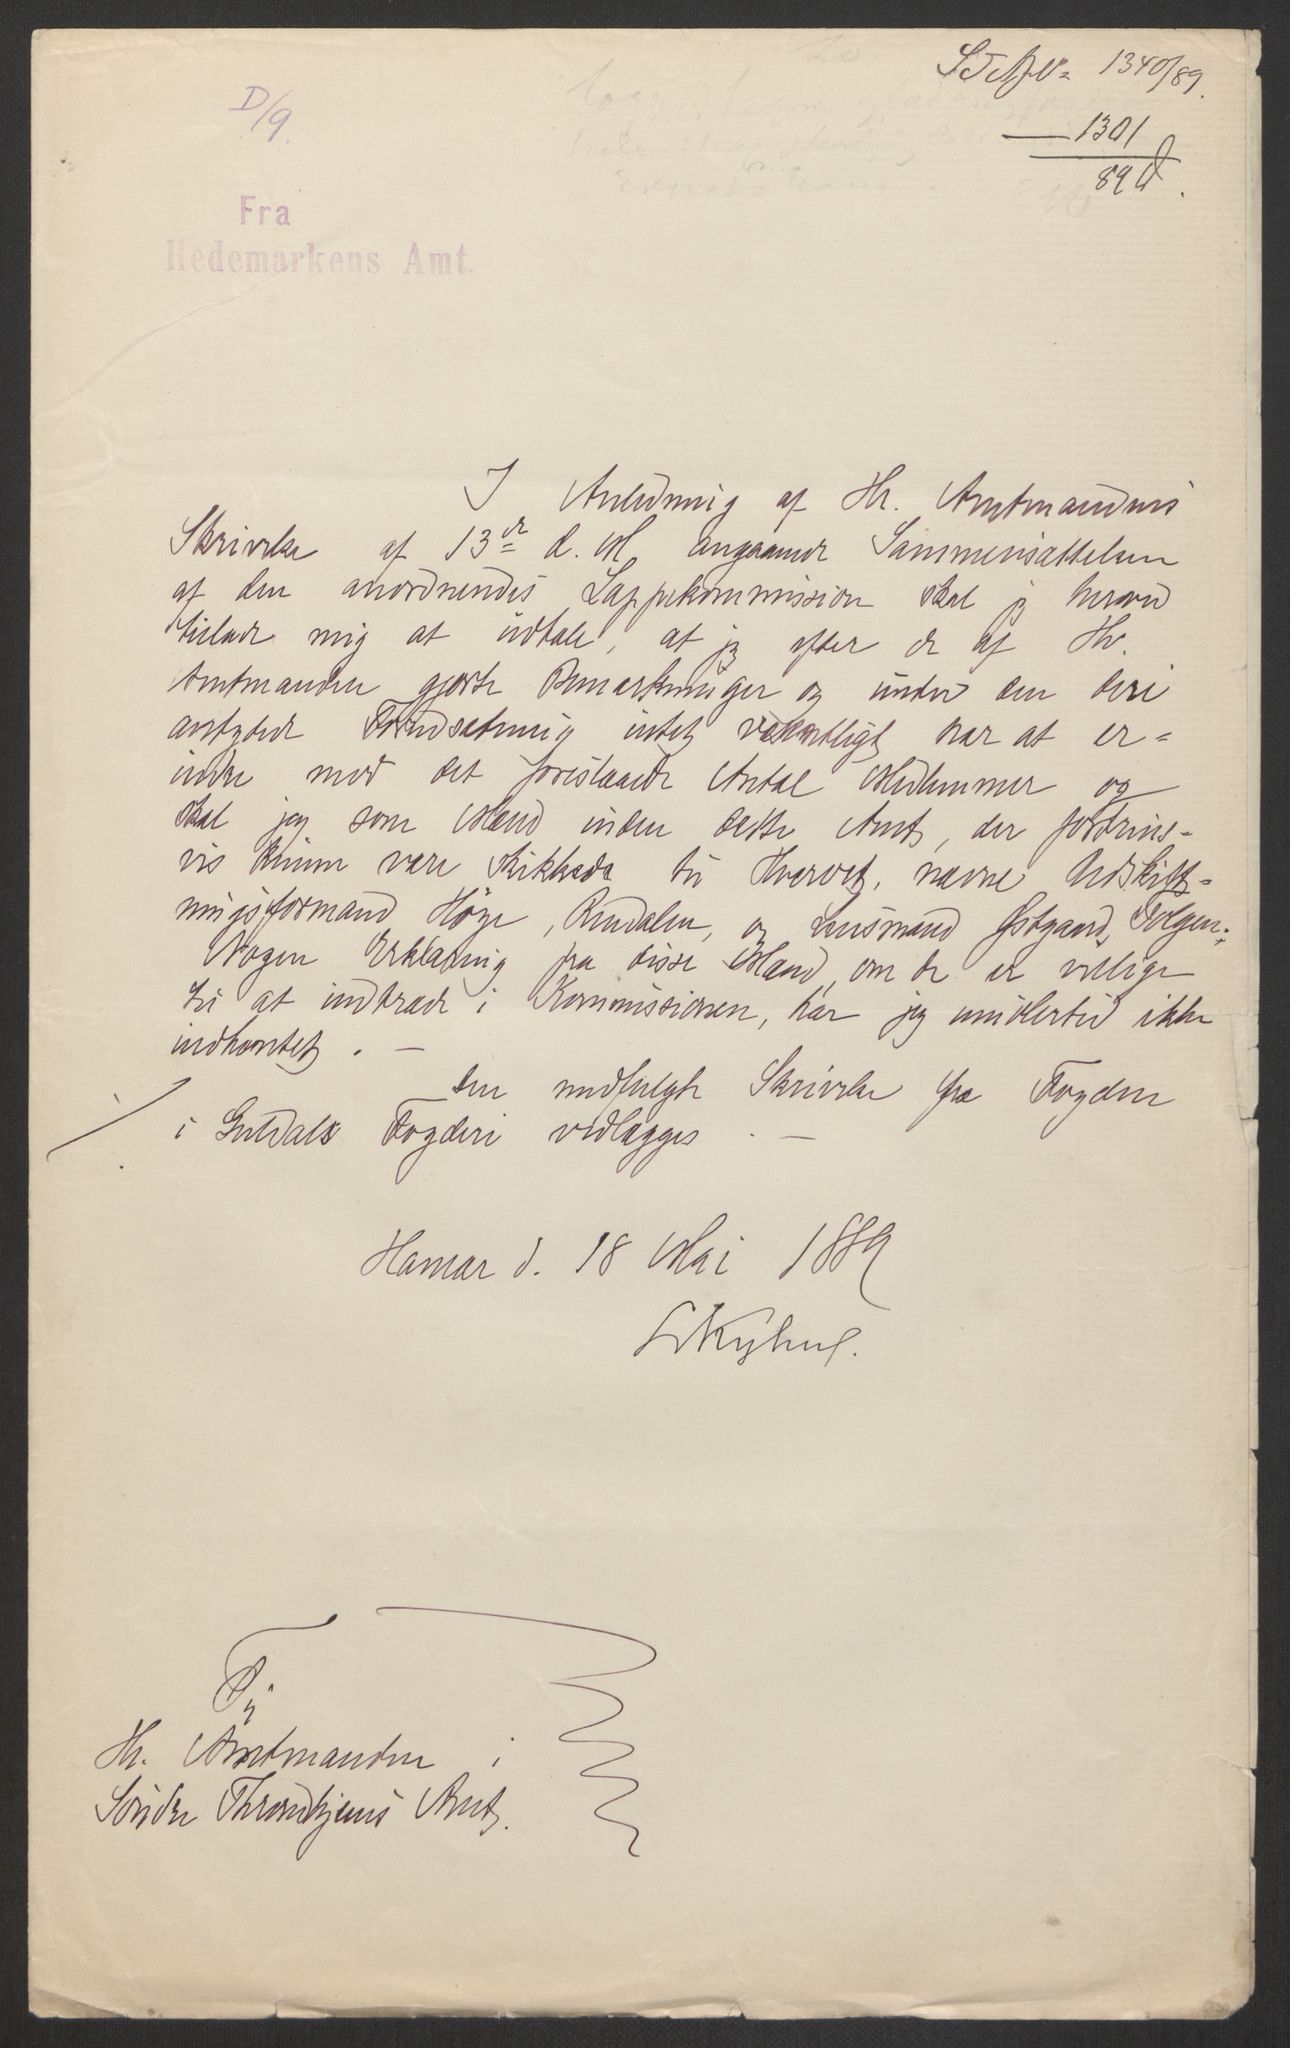 STAJNo 1340/89.
D/9.
— 1301
89 A.
Fra
Hedemarkens Amt.
I Anledning af Hr. Amtmandens
Skrivelse af 13de d. M. angaaende Sammensættelsen
af den anordnendes Lappekommission skal jeg herved
tillade mig at udtale, at jeg efter de af Hr.
Amtmanden gjorte Bemærkninger og under den deri
antydede Forudsætning intet væsentligt har at er-
indre mod det foreslaaede Antal Medlemmer og
skal jeg som Mænd inden dette Amt, der fortrins-
vis kunne være skikkede til Hvervet, nævne Udskift-
ningsformand Høye, Rendalen, og Lensmand Østgaard, Tolgen.
Nogen Erklæring fra disse Mænd, om de er villige
til at indtræde i Kommissionen, har jeg imidlertid ikke
indhentet. —
Den medfulgte Skrivelse fra Fogden
i Guldals Fogderi vedlægges. —
Hamar d. 18 Mai 1889
Til
Hr. Amtmanden i
Søndre Throndhjems Amt.